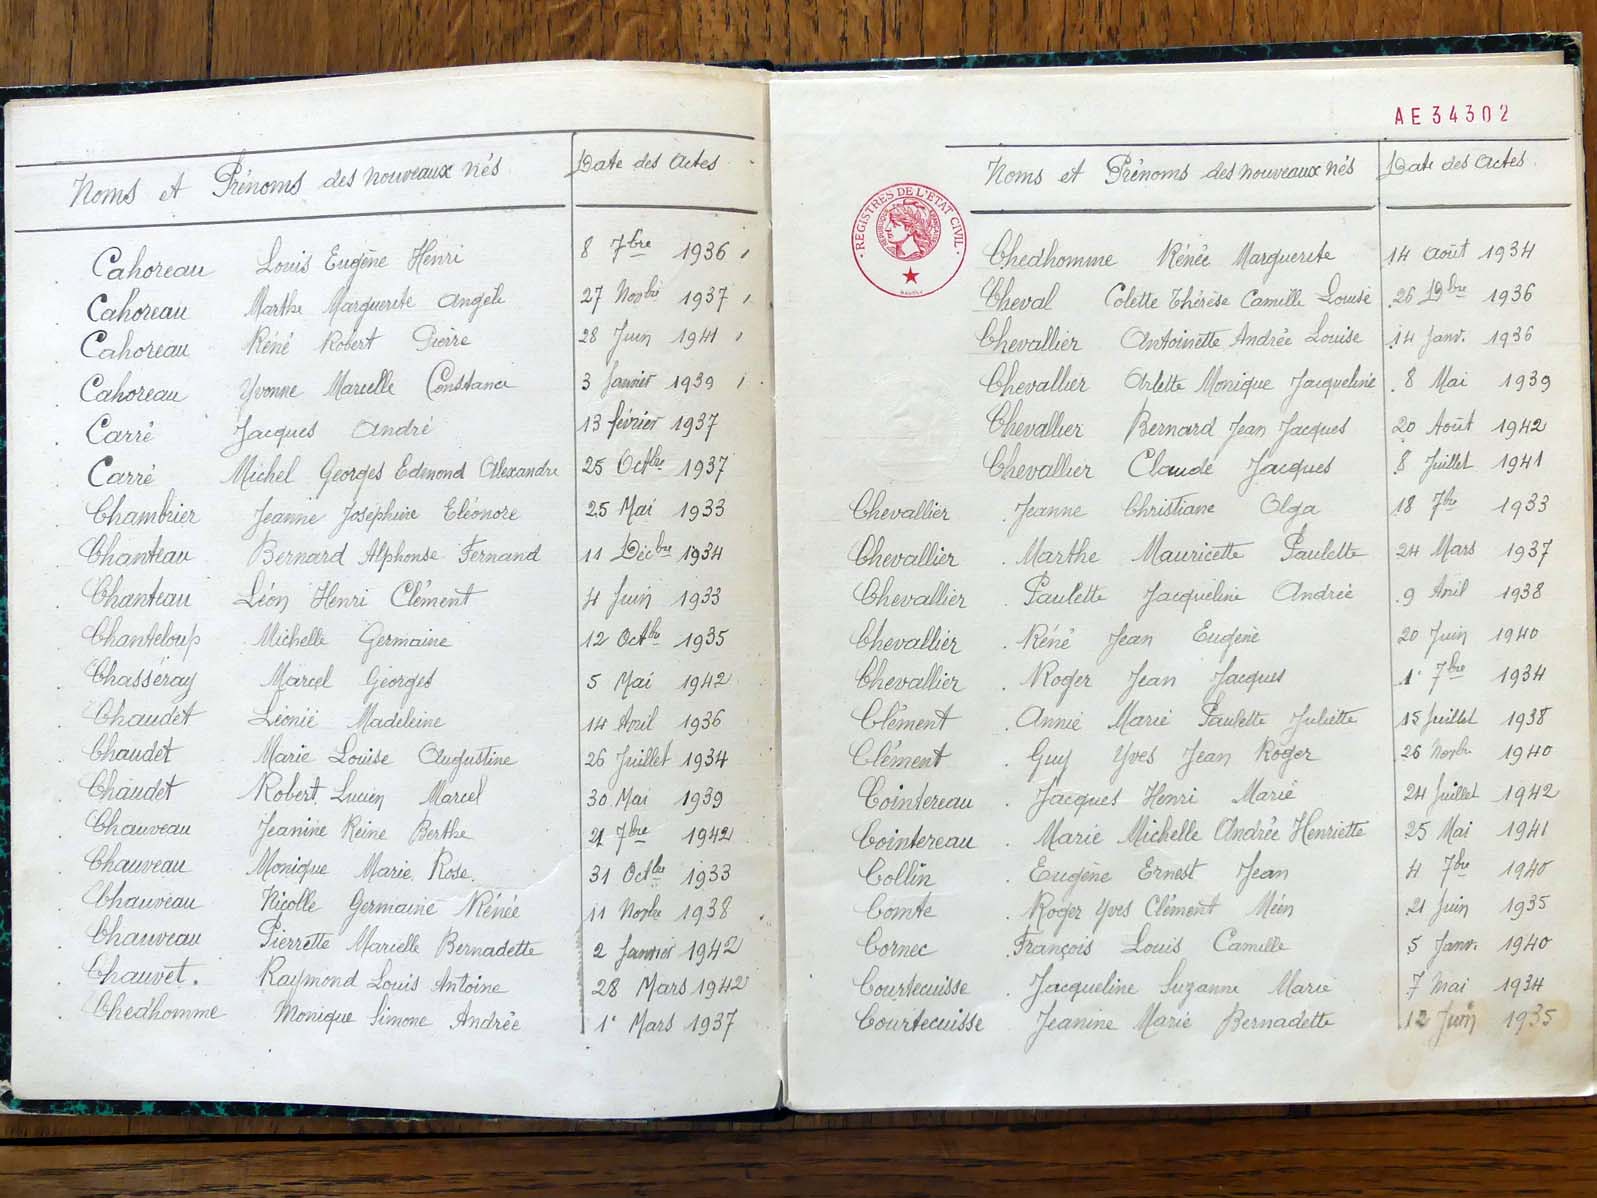 Noms et Prénoms des nouveaux nés Date des actes
Cahoreau Louis Eugène Henri 8 7bre 1936
Cahoreau Marthe Marguerite Angèle 27 Novbre 1937
Cahoreau Réné Robert Pierre 28 Juin 1941
Cahoreau Yvonne Marcelle Constance 3 Janvier 1939
Carré Jacques André 13 février 1937
Carré Michel Georges Edmond Alexandre 25 Octbre 1937
Chambrier Jeanne Joséphine Eléonore 25 Mai 1933
Chanteau Bernard Alphonse Fernand 11 Décbre 1934
Chanteau Léon Henri Clément 4 Juin 1933
Chanteloup Michelle Germaine 12 Octbre 1935
Chasséray Marcel Georges 5 Mai 1942
Chaudet Léonie Madeleine 14 Avril 1936
Chaudet Marie Louise Augustine 26 Juillet 1934
Chaudet Robert Lucien Marcel 30 Mai 1939
Chauveau Jeanine Reine Berthe 21 7bre 1942
Chauveau Monique Marie Rose 31 Octbre 1933
Chauveau Nicolle Germaine Rénée 11 Novbre 1938
Chauveau Pierrette Marielle Bernadette 2 Janvier 1942
Chauvet. Raymond Louis Antoine 28 Mars 1942
Chedhomme Monique Simone Andrée 1er Mars 1937
AE34302
Noms et Prénoms des nouveaux nés Date des actes
REGISTRES DE L'ETAT CIVIL
Chedhomme Rénée Marguerite 14 Août 1934
Cheval Colette Thérèse Camille Louise 26 Dbre 1936
Chevallier Antoinette Andrée Louise 14 Janv. 1936
Chevallier Arlette Monique Jacqueline 8 Mai 1939
Chevallier Bernard Jean Jacques 20 Août 1942
Chevallier Claude Jacques 8 Juillet 1941
Chevallier Jeanne Christiane Olga 18 7bre 1933
Chevallier Marthe Mauricette Paulette 24 Mars 1937
Chevallier Paulette Jacqueline Andrée 9 Avril 1938
Chevallier Réné Jean Eugène 20 Juin 1940
Chevallier Roger Jean Jacques 1er 7bre 1934
Clément Annie Marie Paulette Juliette 15 Juillet 1938
Clément Guy Yves Jean Roger 26 Novbre 1940
Cointereau Jacques Henri Marie 24 Juillet 1942
Cointereau Marie Michelle Andrée Henriette 25 Mai 1941
Collin Eugène Ernest Jean 4 7bre 1940
Comte Roger Yves Clément Méen 21 Juin 1935
Cornec François Louis Camille 5 Janv. 1940
Courtecuisse Jacqueline Suzanne Marie 7 Mai 1934
Courtecuisse Jeanine Marie Bernadette 12 Juin 1935